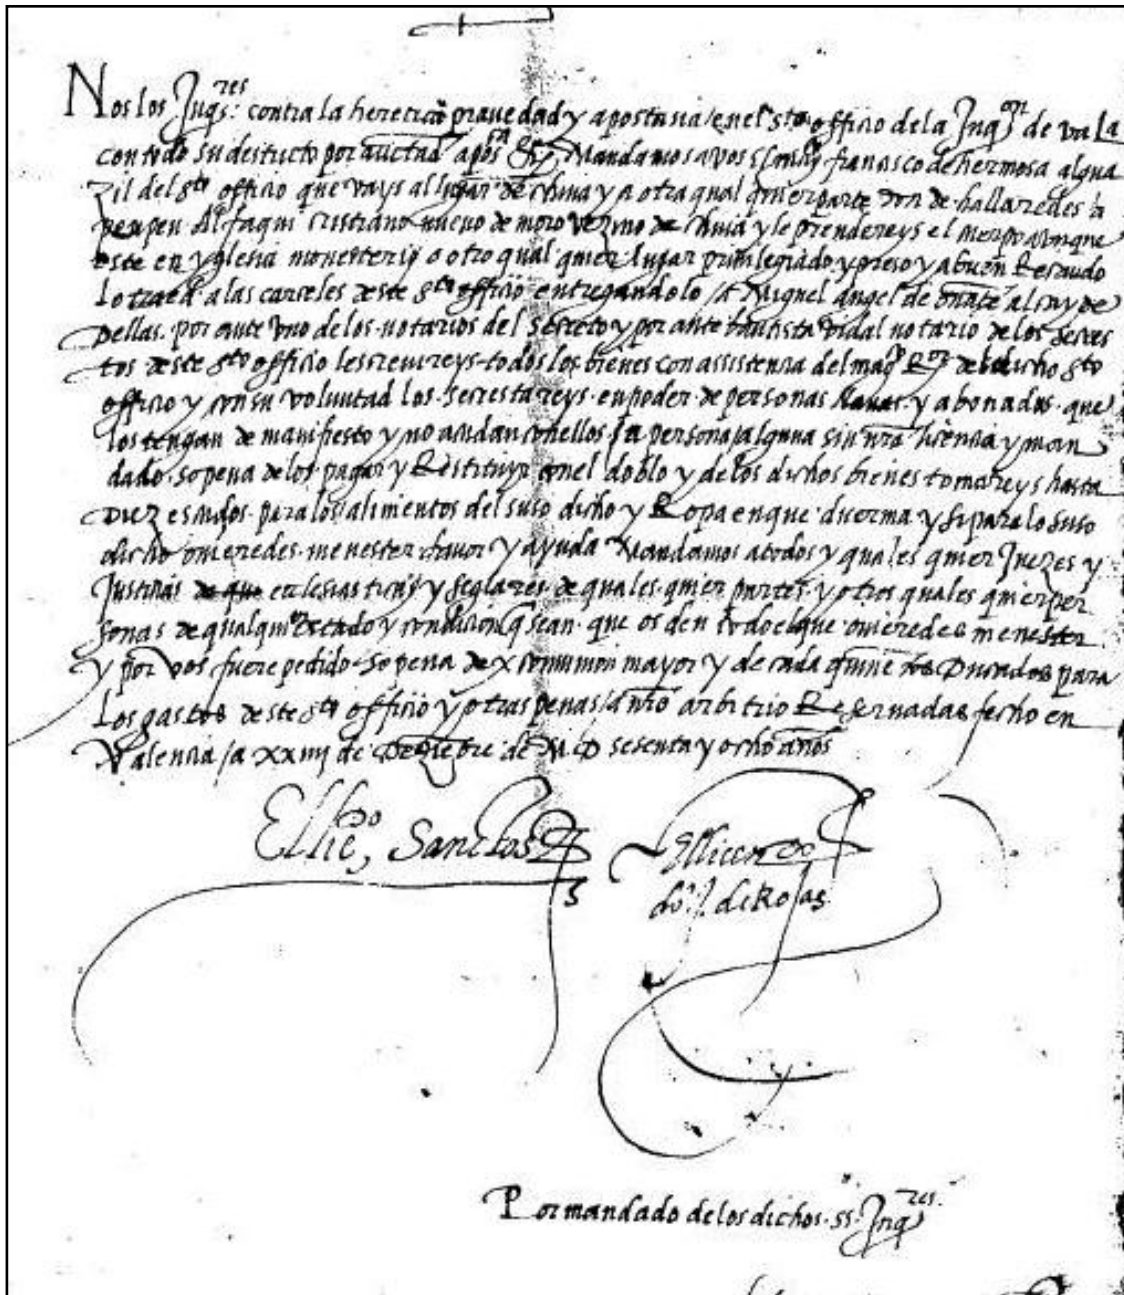 Nos los Inqres: contra la heretica pravedad y apostasia en el sto officio de la Inqon de vala
con todo su destricto por auctad aposca &c. Mandamos a vos el francisco de hermosa algua
zil del sto officio que vays al lugar de chiva y a otra qual quier parte don de hallaredes a
peupeu Alfaqui cristiano nuevo de moro vezino de chiva y le prendereys el cuerpo aunque
este en yglesia monesterio o otro qual quier lugar previlegiado y preso y a buen Recaudo
lo traed a las carceles deste sto officio entregandolo /a Miguel angel de oñate alcayde
dellas. por ante uno de los notarios del Secreto y por ante bautista vidal notario de los secres
tos deste sto officio les screvireys todos los bienes con assistencia del magco Ror del dicho sto
officio y con su voluntad los secrestareys en poder de personas llanas y abonadas que
los tengan de manifiesto y no acudan con ellos /a persona /alguna sin nra licencia y man
dado so pena de los pagar y Restituyr con el doblo y de los dichos bienes tomareys hasta
Diez escudos para los /alimentos del suso dicho y Ropa en que duerma y si para lo suso
dicho ovieredes menester favor y ayuda Mandamos a todos y quales quier Juezes y
Justicias de que eclesiasticas y seglares de quales quier partes y otros quales quier per
sonas de qualquier estado y condicion q sean que os den todo el que ovieredes menester
y por vos fuere pedido so pena de xcomunion mayor y de cada quinientos Ducados para
Los gastos deste sto officio y otras penas /a nro arbitrio Reservadas fecho en
Valencia /a xxiiij de Deziebre de M D sesenta y ocho años
El licdo, Sanctos
El licendo
do. J. de Rojas
Por mandado de los dichos ss. Inqres.